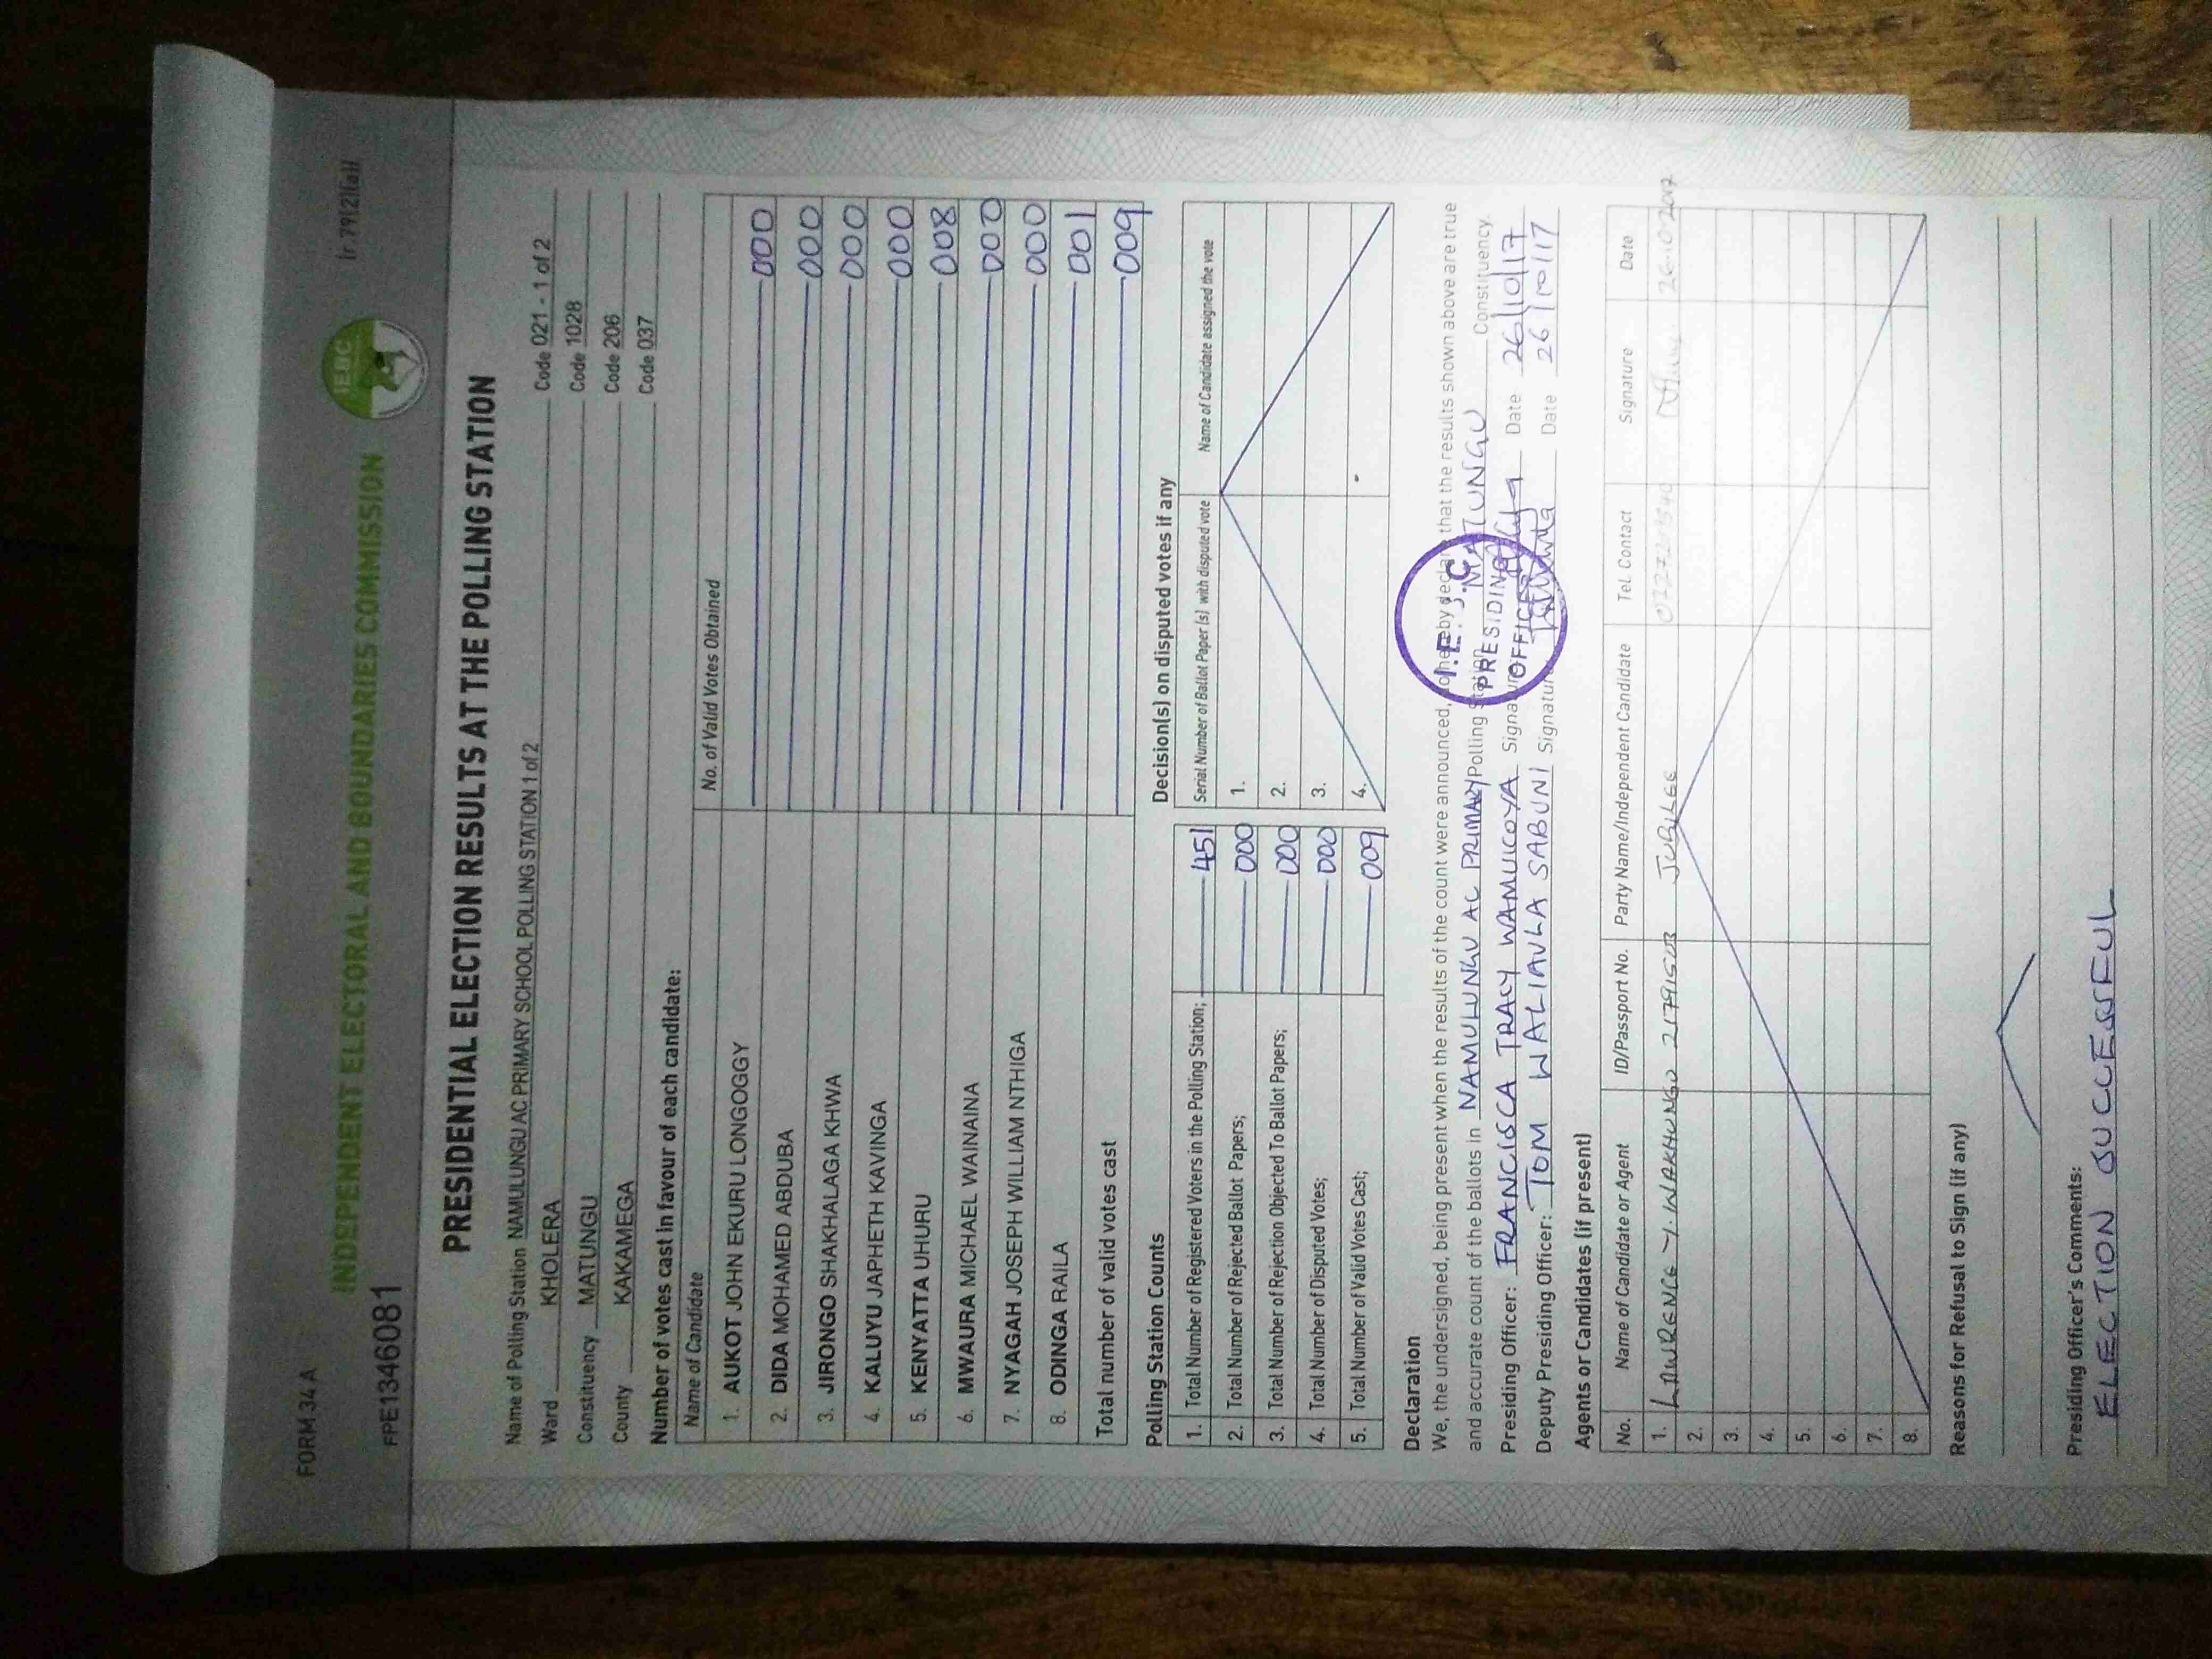 FORM 34 A
Ir 79(2)(a)l
INDEPENDENT ELECTORAL AND BOUNDARIES COMMISSION
IEBC
FPE1346081
PRESIDENTIAL ELECTION RESULTS AT THE POLLING STATION
Name of Polling Station NAMULUNGU AC PRIMARY SCHOOL POLLING STATION 1 of 2 Code 021 - 1 of 2
Ward KHOLERA Code 1028
Constituency MATUNGU Code 206
County KAKAMEGA Code 037
Number of votes cast in favour of each candidate:
Name of Candidate No. of Valid Votes Obtained
1. AUKOT JOHN EKURU LONGOGGY 000
2. DIDA MOHAMED ABDUBA 000
3. JIRONGO SHAKHALAGA KHWA 000
4. KALUYU JAPHETH KAVINGA 000
5. KENYATTA UHURU 008
6. MWAURA MICHAEL WAINAINA 000
7. NYAGAH JOSEPH WILLIAM NTHIGA 000
8. ODINGA RAILA 001
Total number of valid votes cast 009
Polling Station Counts
1. Total Number of Registered Voters in the Polling Station; 451
2. Total Number of Rejected Ballot Papers; 000
3. Total Number of Rejection Objected To Ballot Papers; 000
4. Total Number of Disputed Votes; 000
5. Total Number of Valid Votes Cast; 009
Decision(s) on disputed votes if any
Serial Number of Ballot Paper (s) with disputed vote Name of Candidate assigned the vote
1.
2.
3.
4.
Declaration
We, the undersigned, being present when the results of the count were announced, do hereby declare that the results shown above are true
and accurate count of the ballots in NAMULUNGU AC PRIMARY Polling Station MATUNGU Constituency.
Presiding Officer: FRANCISCA TRACY WAMUCOYA Signature Date 26/10/17
Deputy Presiding Officer: TOM WALIAVLA SABUNI Signature Date 26/10/17
I.E.B.C
PRESIDING
OFFICER
Agents or Candidates (if present)
No. Name of Candidate or Agent ID/Passport No. Party Name/Independent Candidate Tel. Contact Signature Date
1. LAWRENCE Y. WAKHUNGU JUBILEE
2.
3.
4.
5.
6.
7.
8.
Reasons for Refusal to Sign (if any)
Presiding Officer's Comments:
ELECTION SUCCESSFUL